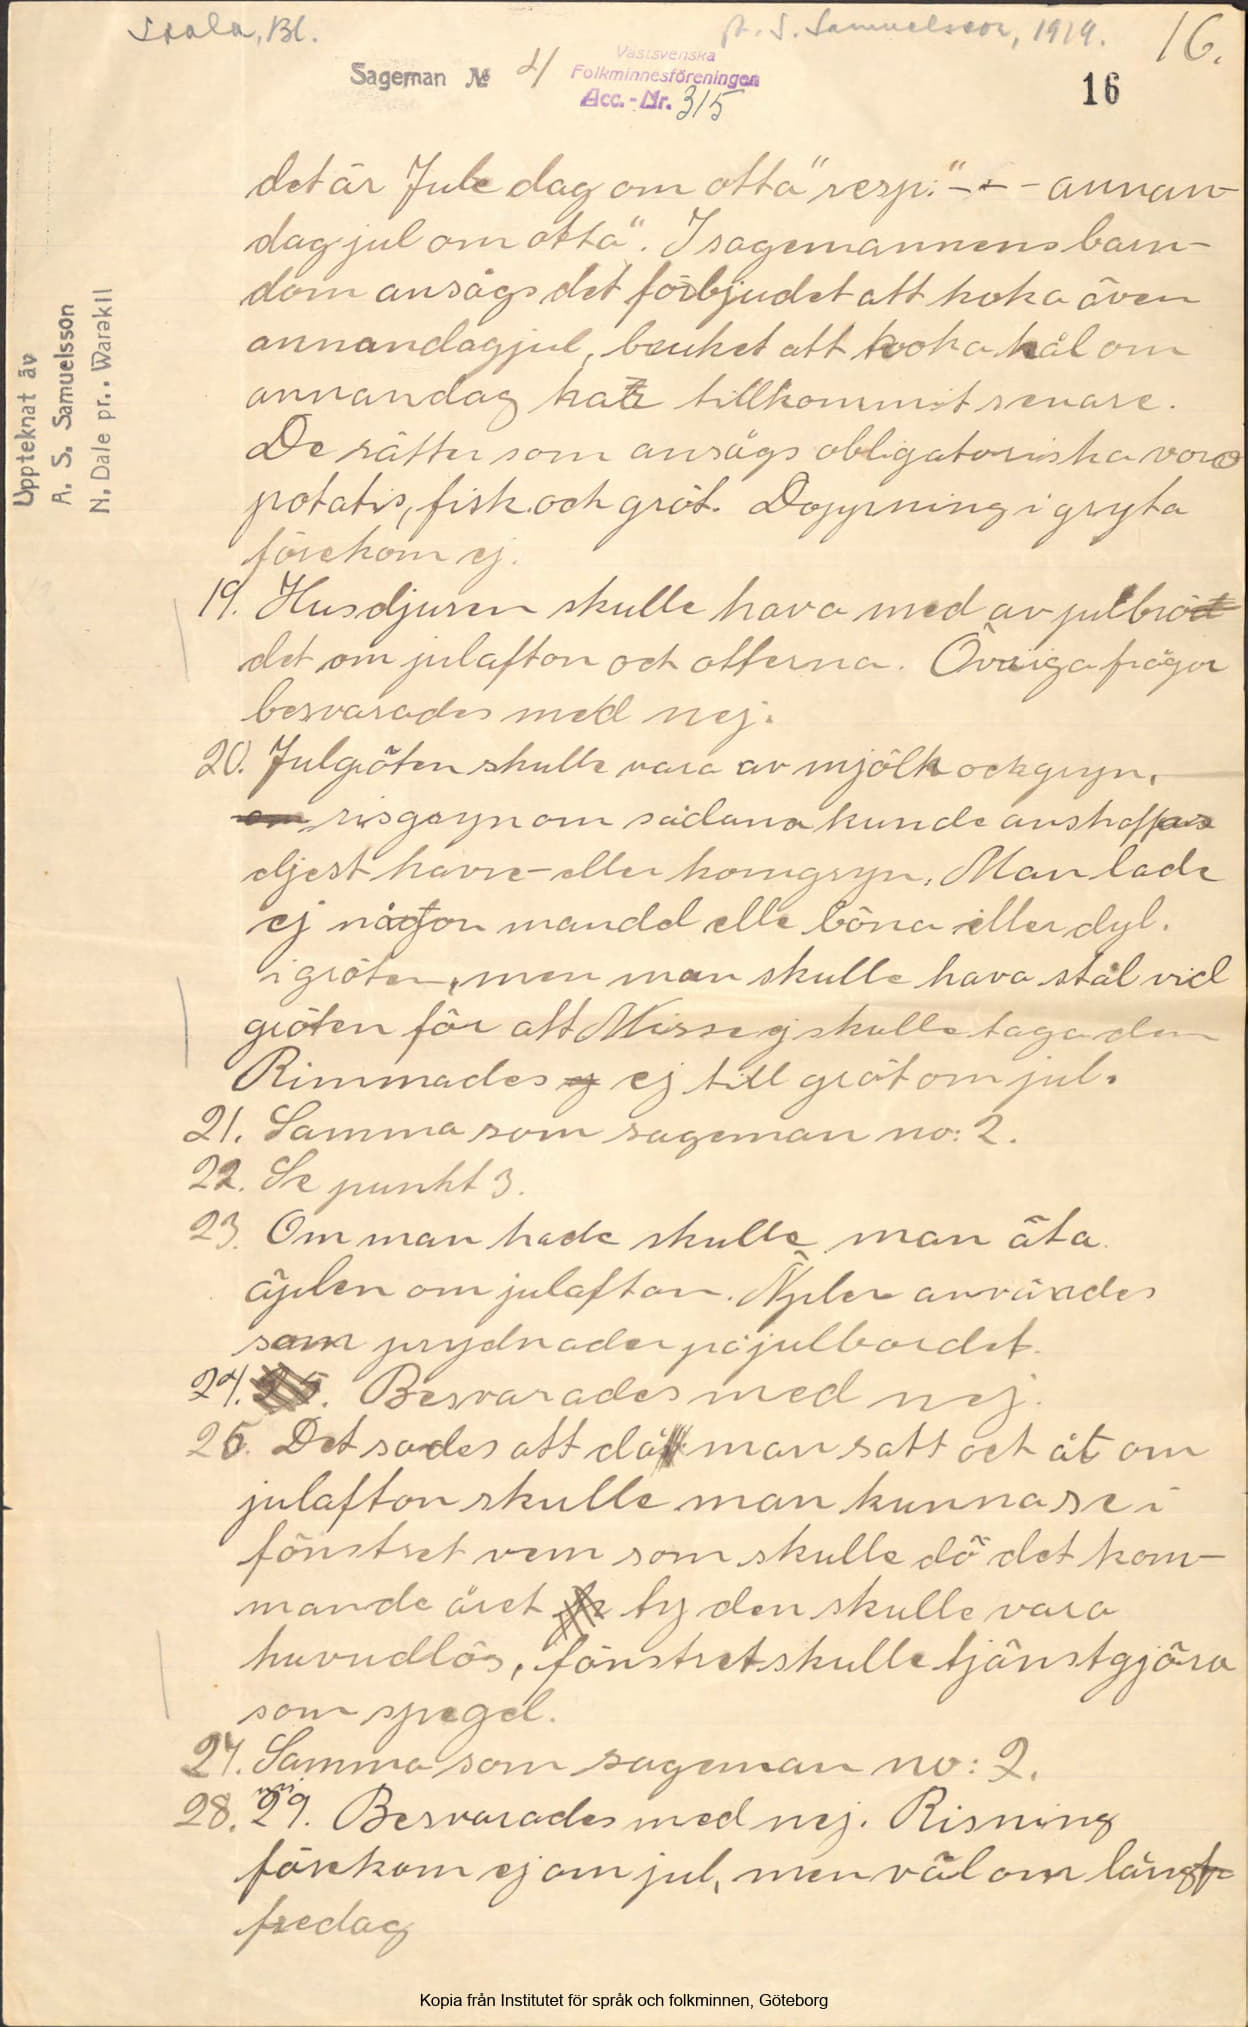 Skala, Bl.
A. S. Samuelsson, 1919.
16.
Sageman № 4
Västsvenska
Folkminnesföreningen
Acc.-Nr. 315
16
Uppteknat av
A. S. Samuelsson
N. Dale pr., Warekil
det är Jule dag om otta" resp. "- - - annan-
dag jul om otta". I sagemannens barn-
dom ansågs det förbjudet att koka även
annandagjul, bruket att koka kål om
annandag har tillkommit senare.
De rätter som ansågs obligatoriska voro
potatis, fisk och gröt. Doppning i gryta
förekom ej.
19. Husdjuren skulle hava med av julbrö
det om julafton och otterna. Övriga frågor
besvarades med nej.
20. Julgröten skulle vara av mjölk och gryn,
risgryn om sådana kunde anskaffas
eljest havre- eller korngryn. Man lade
ej någon mandel elle böna eller dyl.
i gröten, men man skulle hava stål vid
gröten för att Nisse ej skulle taga den
Rimmades ej till gröt om jul.
21. Samma som sageman no: 2.
22. Se punkt 3.
23. Om man hade skulle man äta
äplen om julafton. Äpler användes
som prydnader på julbordet.
24. 25. Besvarades med nej.
26. Det sades att då man satt och åt om
julafton skulle man kunna se i
fönstret vem som skulle dö det kom-
mande året ty den skulle vara
huvudlös, fönstret skulle tjänstgjöra
som spegel.
27. Samma som sageman no: 2.
28. 29. Besvarades med nej. Risning
förekom ej om jul, men väl om lång
fredag
Kopia från Institutet för språk och folkminnen, Göteborg